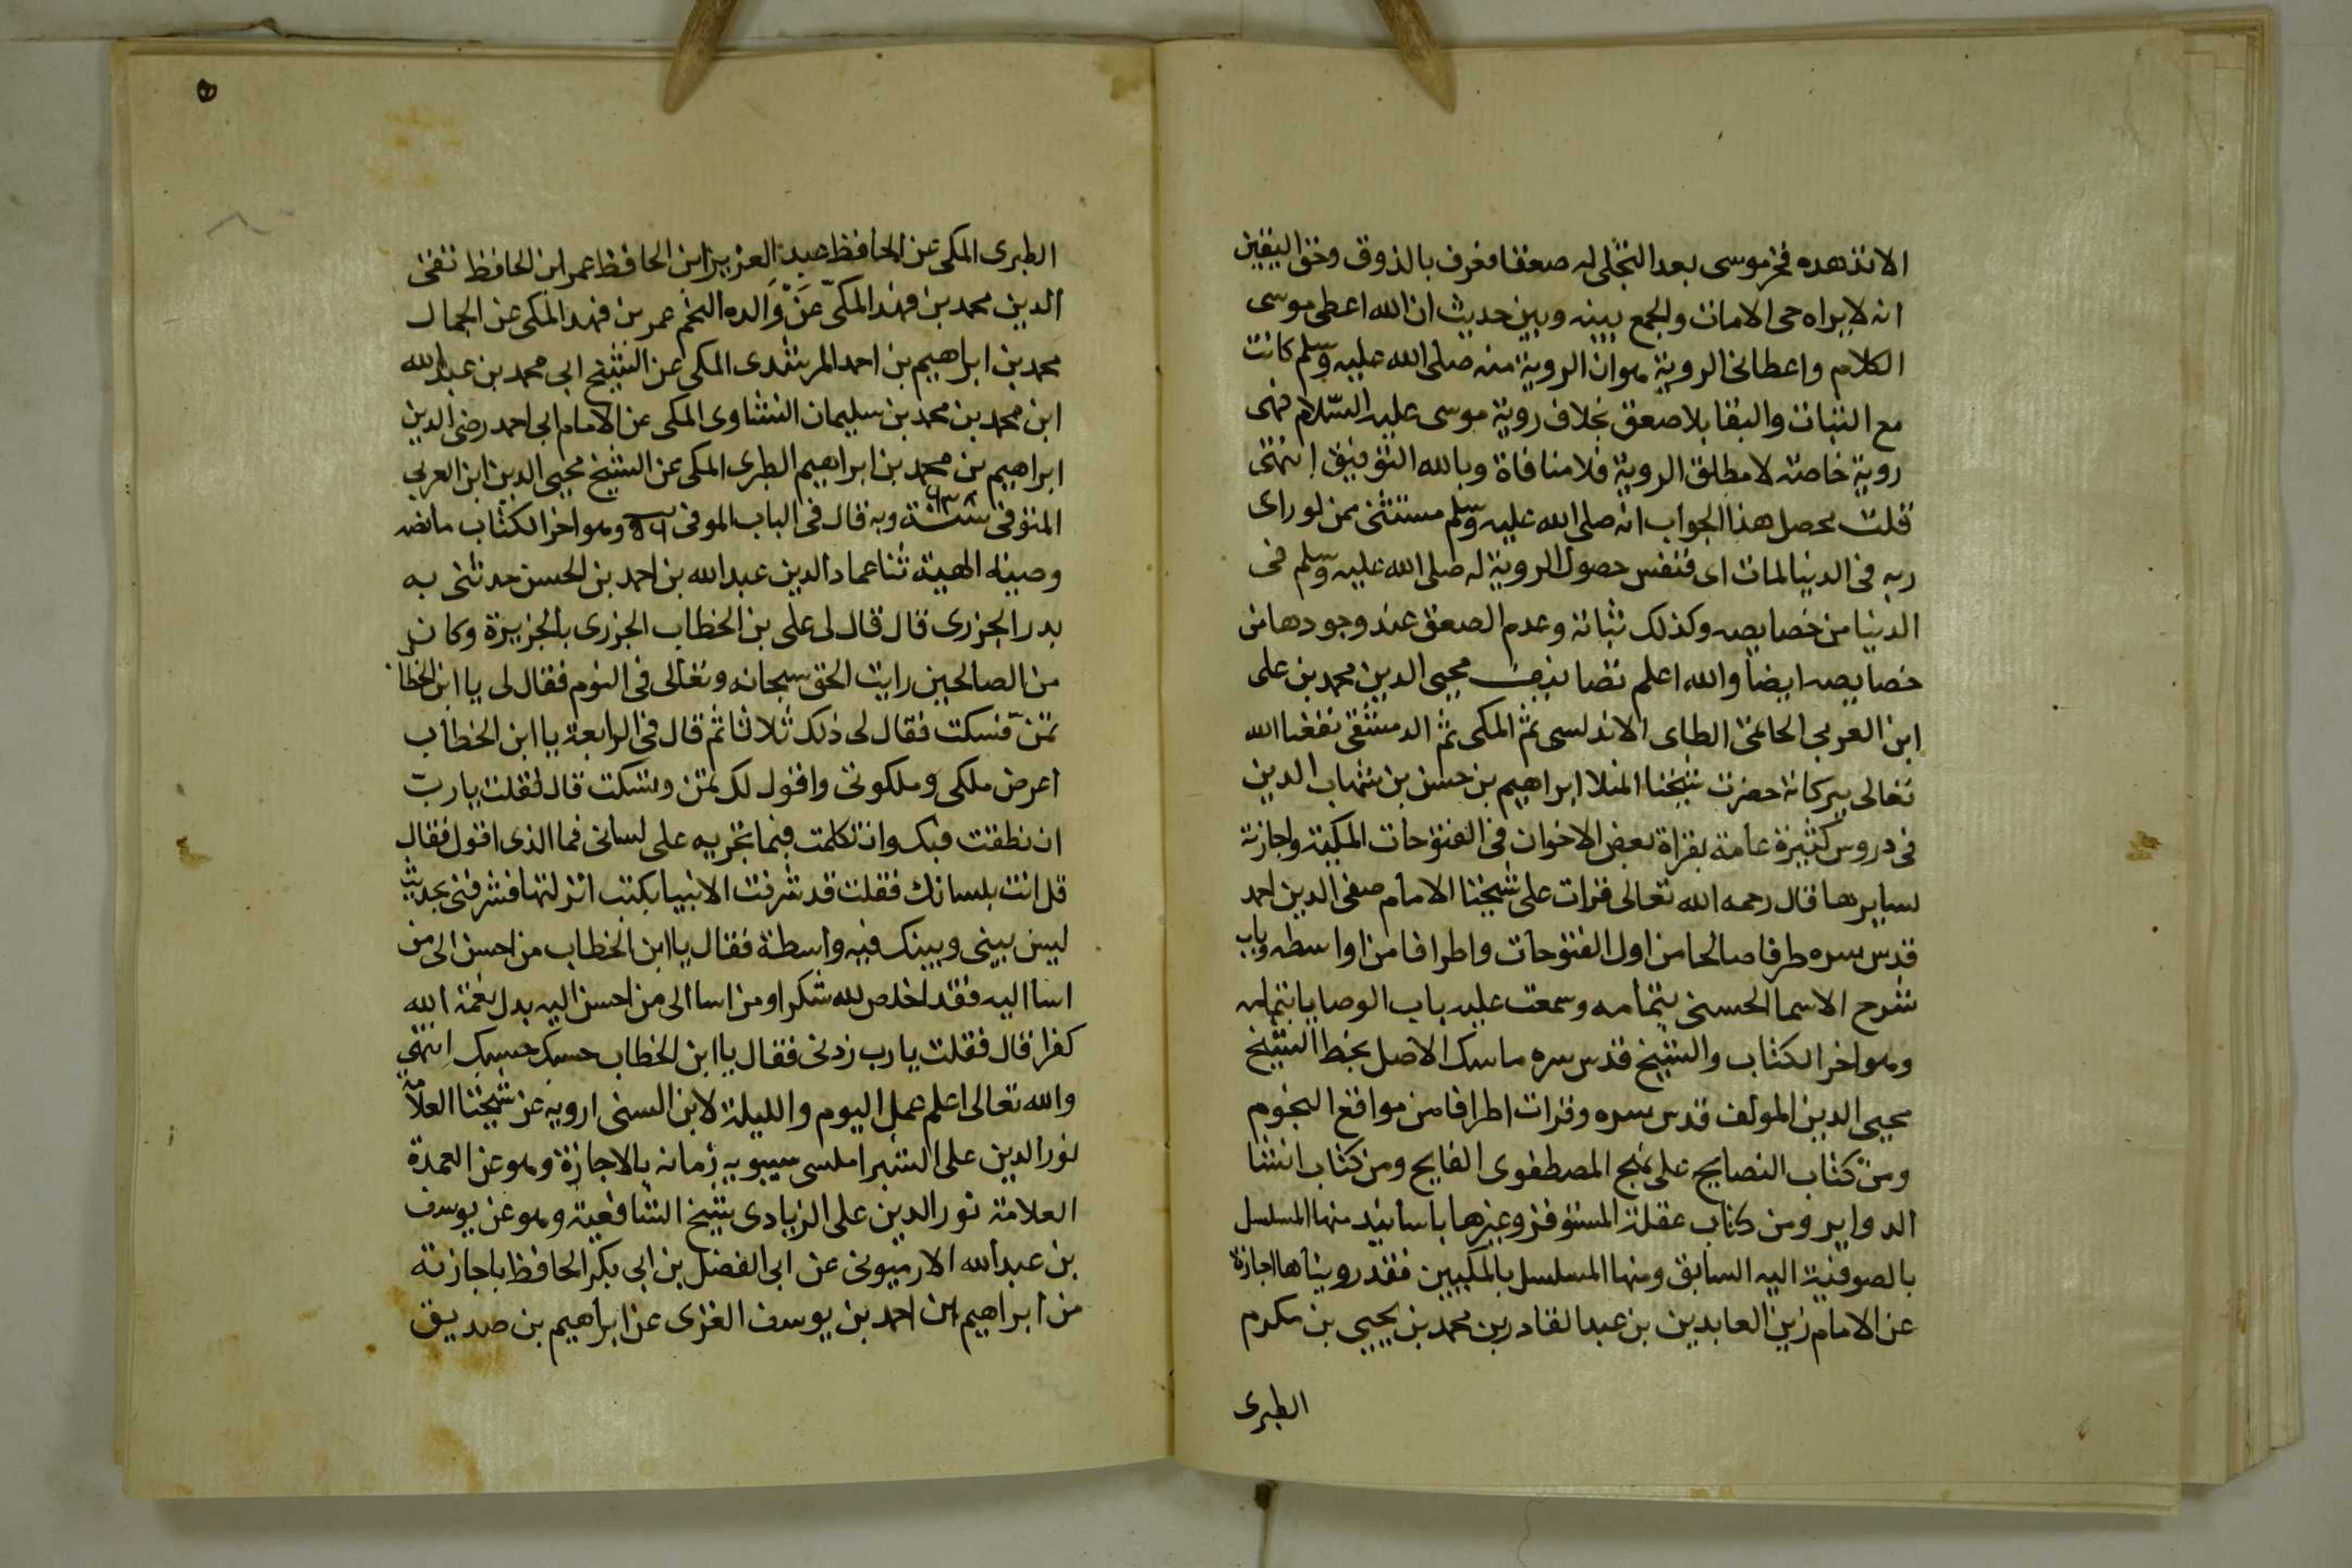 الا تدهده فخر موسى بعد التجلى له صعقا فعرف بالذوق وحق اليقين
انه لا يراه حى الا مات والجمع بينه وبين حديث ان الله اعطى موسى
الكلام واعطانى الروية هو ان الروية منه صلى الله عليه وسلم كانت
مع الثبات والبقا بلا صعق بخلاف روية موسى عليه السّلام فهى
روية خاصة لا مطلق الروية فلا منافاة وبالله التوفيق انتهى
قلت محصل هذا الجواب انه صلى الله عليه وسلم مستثنى ممن لو راى
ربه فى الدنيا لمات اى فنفس حصول الروية له صلى الله عليه وسلم فى
الدنيا من خصايصه وكذلك ثباته وعدم الصعق عند وجودها من
خصايصه ايضا والله اعلم تصانيف محيى الدين محمد بن على
ابن العربى الحاتمى الطاى الاندلسى ثم المكى ثم الدمشقى نفعنا الله
تعالى ببركاته حضرت شيخنا المنلا ابراهيم بن حسن بن شهاب الدين
فى دروس كثيرة عامة بقراة بعض الاخوان فى الفتوحات المكية واجازة
لسايرها قال رحمه الله تعالى قرات على شيخنا الامام صفى الدين احمد
قدس سره طرفا صالحا من اول الفتوحات واطرافا من اواسطه وباب
شرح الاسما الحسنى بتمامه وسمعت عليه باب الوصايا بتمامه
وهو اخر الكتاب والشيخ قدس سره ماسك الاصل بخط الشيخ
محيى الدين المولف قدس سره وقرات اطرافا من مواقع النجوم
ومن كتاب النصايح على نهج المصطفوى الفايح ومن كتاب انشا
الدواير ومن كتاب عقلة المستوفز وغيرها باسانيد منها المسلسل
بالصوفية اليه السابق ومنها المسلسل بالمكيين فقد رويناها اجازة
عن الامام زين العابدين بن عبد القادر بن محمد بن يحيى بن مكرم
الطبرى
الطبرى المكى عن الحافظ عبد العزيز ابن الحافظ عمر ابن الحافظ تقى
الدين محمد بن فهد المكىّ عَنْ وَالده النجم عمر بن فهد المكى عن الجمال
محمد بن ابراهيم بن احمد المرشدى المكى عن الشيخ ابى محمد بن عبد الله
ابن محمد بن محمد بن سليمان النشاورى المكى عن الامام ابى احمد رضى الدين
ابراهيم بن محمد بن ابراهيم الطبرى المكى عن الشيخ محيى الدين ابن العربى
المتوفى سنة ٦٣٨ وبه قال فى الباب الموفى وهو اخر الكتاب ما نصه
وصية الهية ثنا عماد الدين عبد الله بن احمد بن الحسن حدثنى به
بدر الجزرى قال قال لى على بن الخطاب الجزرى بالجزيرة وكان
من الصالحين رايت الحق سبحانه وتعالى فى النوم فقال لى يا ابن الخطا
تمنّ فسكت فقال لى ذلك ثلاثا ثم قال فى الرابعة يا ابن الخطاب
اعرض ملكى وملكوتى واقول لك تمن وتسكت قال فقلت يا ربّ
ان نطقت فبك وان تكلمت فبما تجريه على لسانى فما الذى اقول فقال
قل انت بلسانك فقلت قد شرفت الانبيا بكتب انزلتها فشرفنى بحديث
ليس بينى وبينك فيه واسطة فقال يا ابن الخطاب من احسن الى من
اسا اليه فقد اخلص لله شكرا ومن اسا الى من احسن اليه بدل نعمة الله
كفرا قال فقلت يا رب زدنى فقال يا ابن الخطاب حسبك حسبك انتهى
والله تعالى اعلم عمل اليوم والليلة لابن السنى ارويه عن شيخنا العلامة
نور الدين على الشبراملسى سيبويه زمانه بالاجازة وهو عن العمدة
العلامة نور الدين على الزيادى شيخ الشافعية وهو عن يوسف
بن عبد الله الارميونى عن ابى الفضل بن ابى بكر الحافظ باجازته
من ابراهيم ابن احمد بن يوسف الغزى عن ابراهيم بن صديق